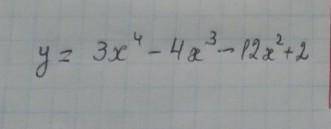 y = 3x⁴ - 4x³ - 12x² + 2